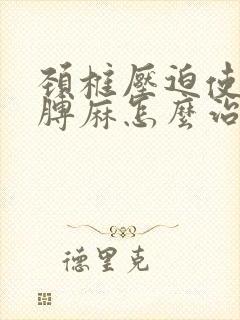 頚椎壓迫使
膊麻怎麼治
德里克